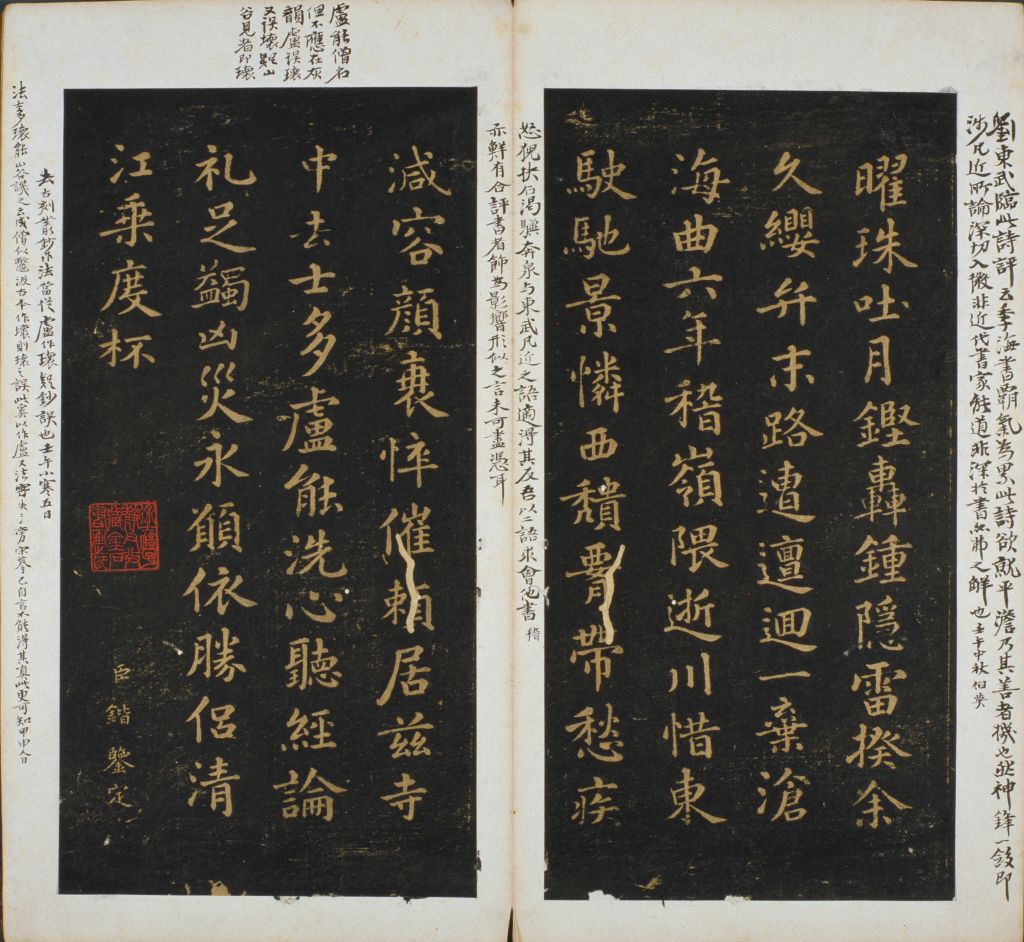 劉東武臨此詩評云季海書霸氣為累此詩欲就平澹乃其善者機也然神鋒一斂即
涉凡近所論深切入微非近代書家能道非深於書者弗之解也壬午中秋伯英
曜珠吐月鏗轟鍾隱雷揆余
久纓弁末路遭邅迴一棄滄
海曲六年稽嶺隈逝川惜東
駛馳景憐西頹腰帶愁疾
怒猊抉石渴驥奔泉与東武凡近之語適得其反吾以二語求會他書稽
亦鮮有合評書者飾為影響形似之言未可盡憑耳
盧能僧名
但不應在灰
韻盧誤瓌
又誤壞疑山
谷見者即壞
減容顏衰悴催賴居茲寺
中去士多盧能洗心聽經論
礼足蠲凶災永願依勝侶清
江乘度杯
臣鍇鑒定
去古刻叢鈔作法當從盧作瓌疑鈔誤也壬午小寒五日
法多瓌能山谷譏之云汲古本作壞則瓌之誤此奚以作盧又法字自言不能得其真此更可知甲申